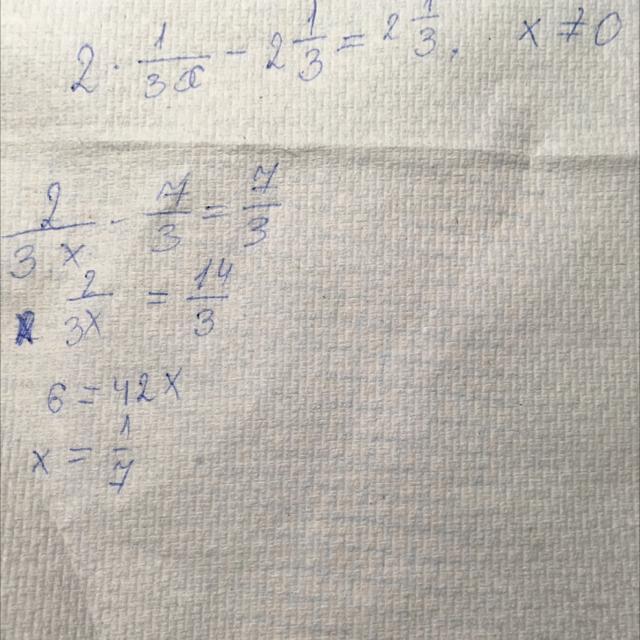 2 · 1/(3x) - 2 1/3 = 2 1/3. x ≠ 0
2/(3x) - 7/3 = 7/3
2/(3x) = 14/3
6 = 42x
x = 1/7